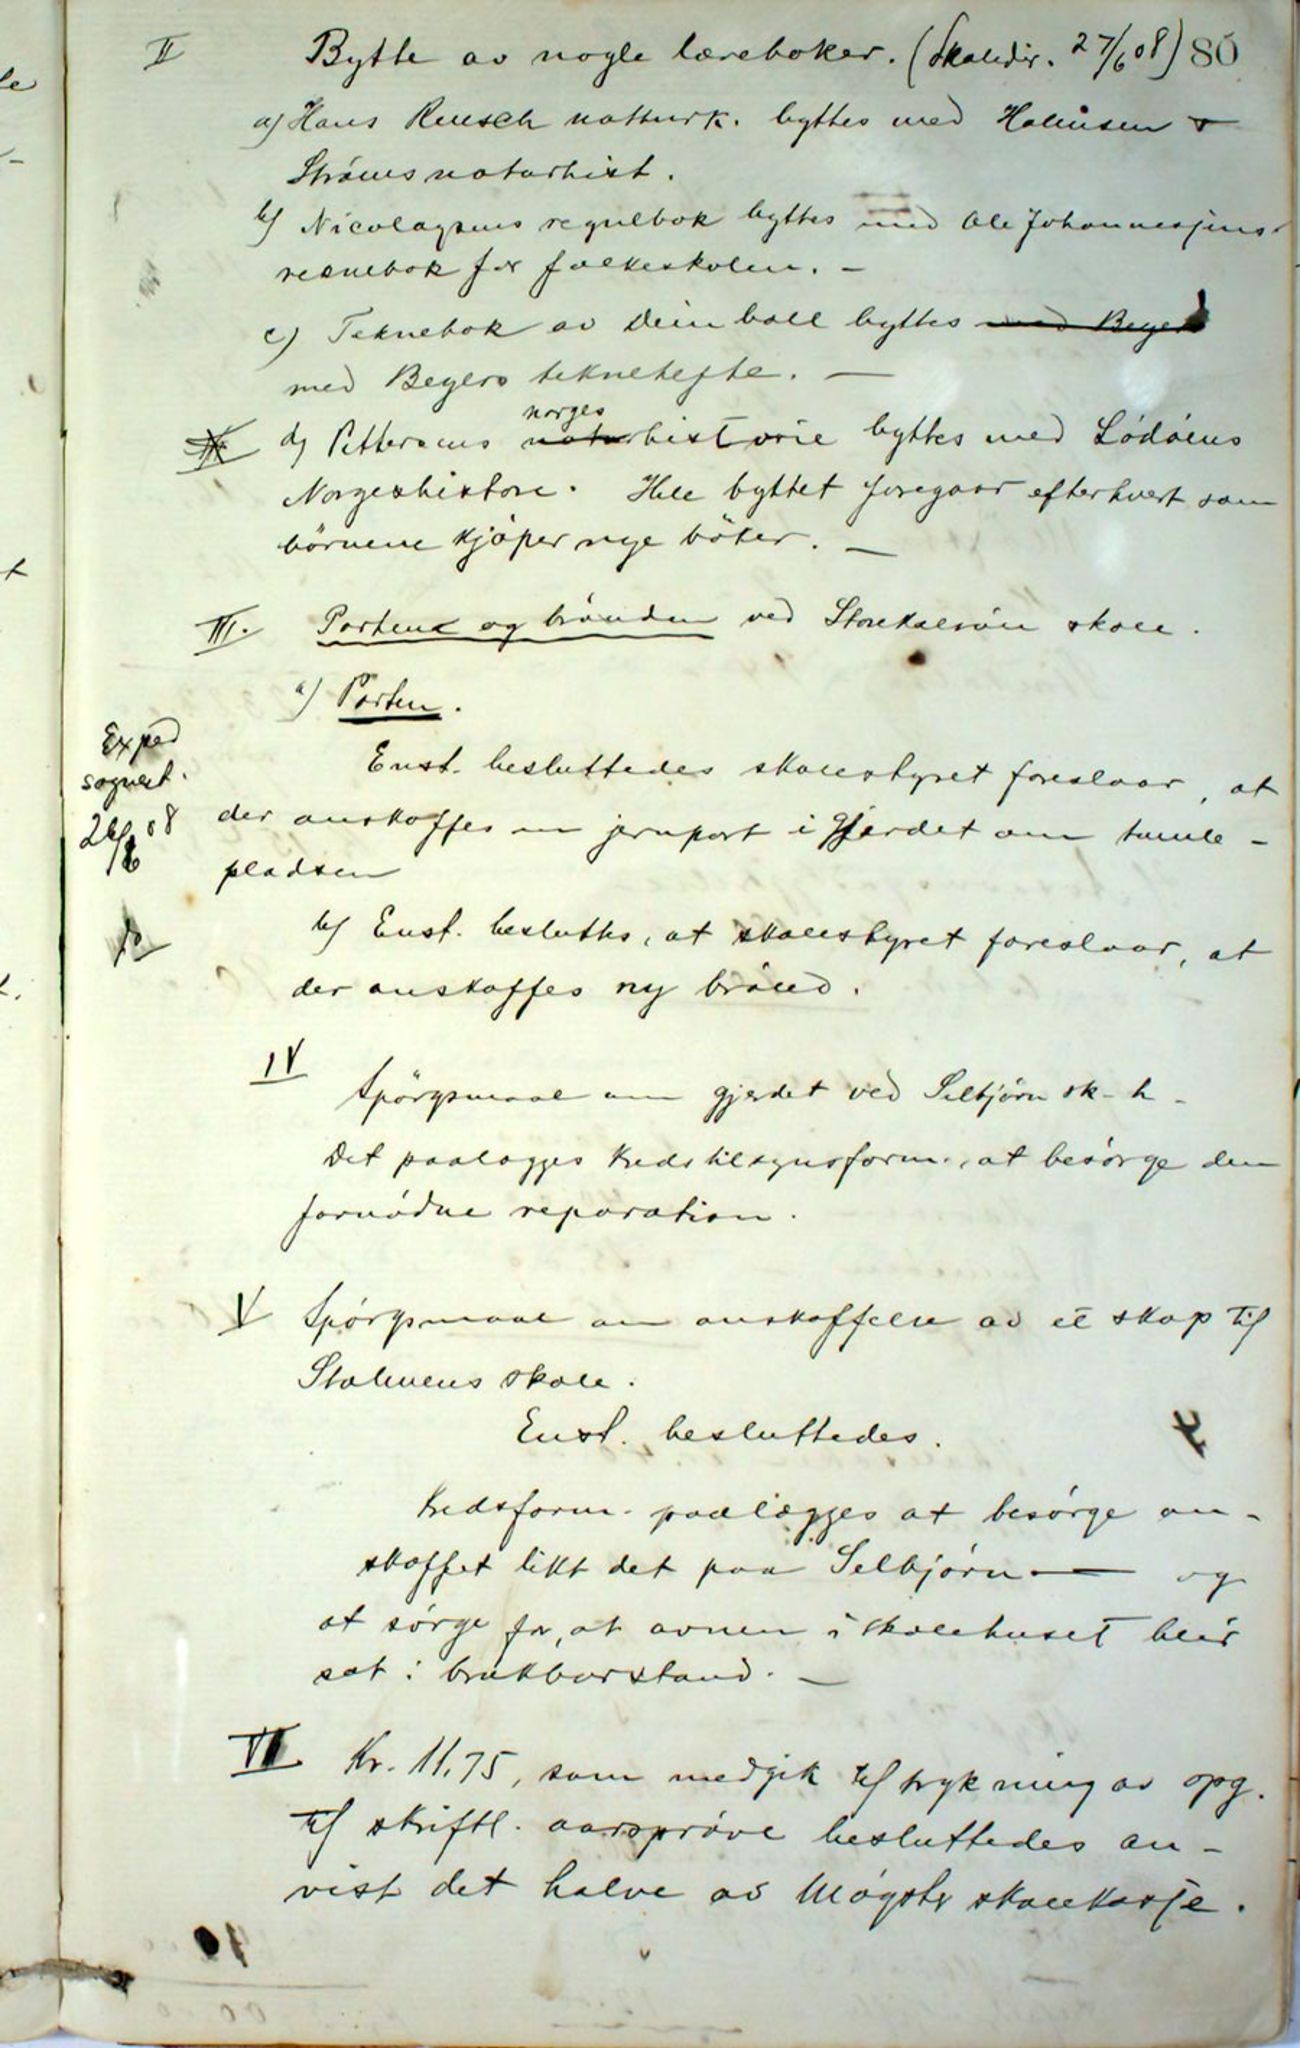 II Bytte av nogle lærebøker. (Skoledir. 27/6 08) 80
a) Hans Reusch naturk. byttes med Halvisen &
Strøms naturhist.
b) Nicolaysens regnebok byttes med Ole Johannesjens
regnebok for folkeskolen. —
c) Teknebok av byttes med Beyers
med Beyers teknehefte. —
d) Pettersens norges naturhistorie byttes med Lødøens
Norgeshistorie. Hele byttet foregaar efterhvert som
børnene kjøper nye bøker. —
III. Porten og brønden ved Storekalsøien skole.
a) Porten.
Exped
sognest.
26/8 08
Enst. besluttedes skolestyret foreslaar, at
der anskaffes en jernport i gjerdet om tumle-
pladsen
do
b) Enst. besluttes, at skolestyret foreslaar, at
der anskaffes ny brønd.
IV
Spørgsmaal om gjerdet ved Selbjørn sk-h-
Det paalægges kredstilsynsform., at besørge den
fornødne reparation.
V Spørgsmaal om anskaffelse av et skap til
Stolmens skole.
Enst. besluttedes.
Kredsform. paalægges at besørge an-
skaffet likt det paa Selbjørn — og
at sørge for, at ovnen i skolehuset blir
sat i brukbar stand. —
VI Kr. 11,75, som medgik til trykning av opg.
til skriftl. aarsprøve besluttedes an-
vist det halve av Møgster skolekasse.